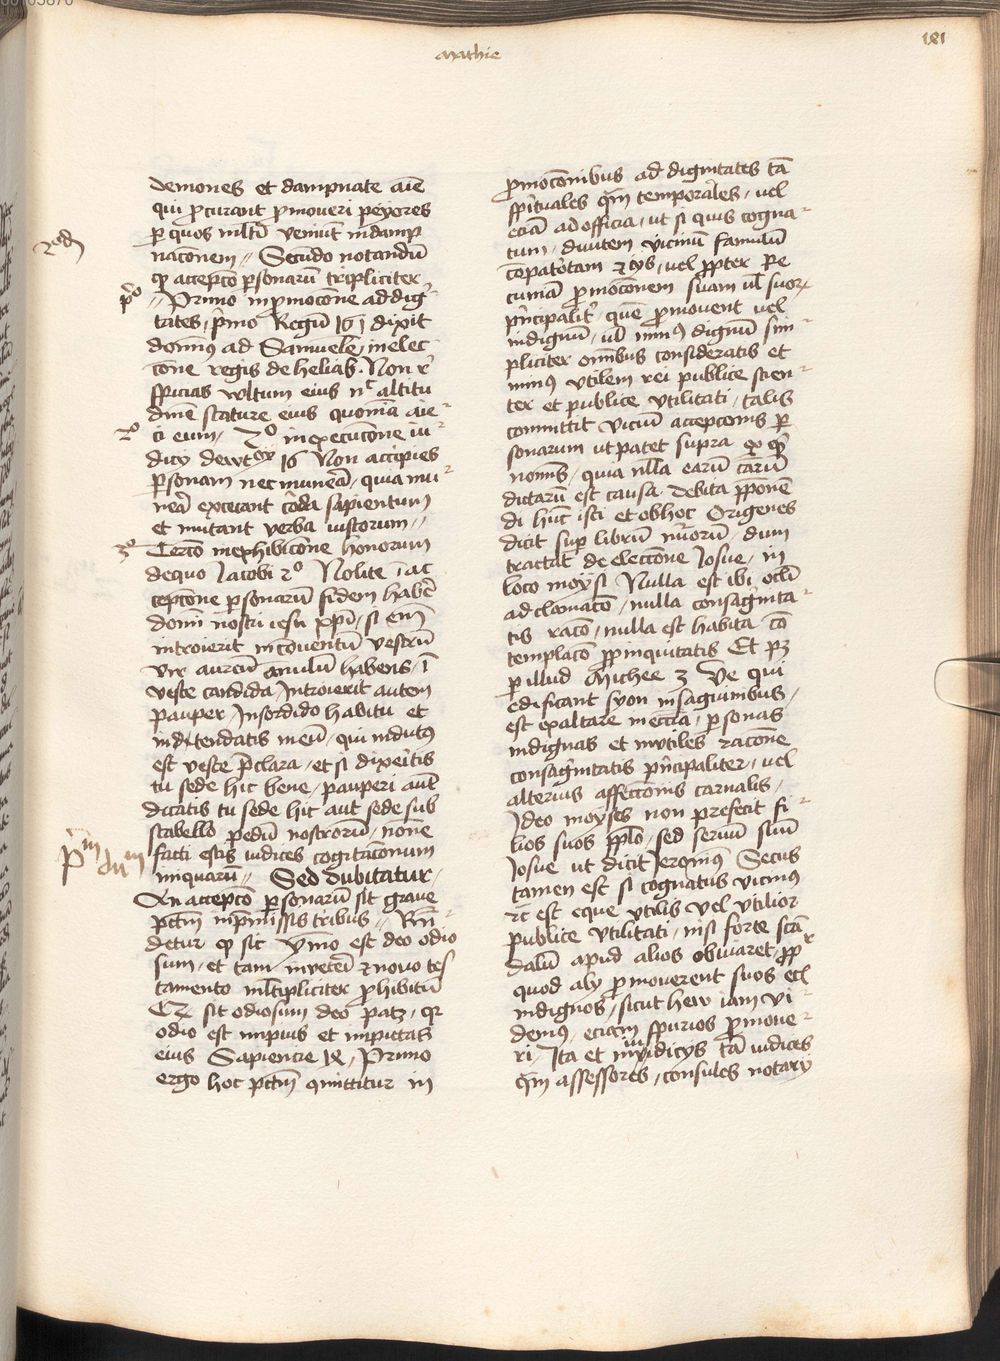 Mathie
191
demones et dampnate aīe
qui ꝓcurant ꝓmoveri peyores
ꝑ quos ml̄ti veniūt indamp
nac̄onem // Secūdo notandū
2ᵒ
ꝙ accepc̄o ꝑsonarū tripliciter
pᵒ
// Primo inꝓmoc̄one ad diḡ
tates / p̄mo Regū 16 dixit
domin9 ad Samuelē / in elec
c̄one regis de heliab · Non r̄
spicias vultum eius nᶜ altitu
dinē stature eius quoniā abie
2ᵒ
ci eum / 2ᵒ in execuc̄one iu
dicy dewtᵒ 16 Non accipies
ꝑsonam nec munera / quia mu
nera excecant corda sapientum
et mutant verba iustorum //
3ᵒ
Tercō in exhibic̄one honorum
de quo Jacobi 2ᵒ Nolite ī ac
cepc̄one ꝑsonarū fidem habē
domī nostri iesu xp̄i / si em̄
introierit in cōventū vestrū
vir aureū anulū habens / ī
veste candida / Introierit autem
pauper / Insordido habitu et
intendatis in eū / qui indut9
est veste p̄clara / et si dixeritis
tu sede hic bene / pauperi aut̄
dicatis tu sede hic aut sede sub
scabello pedū nostrorū / nōne
facti estis iudices cogitac̄onum
iniquarū // Sed dubitatur /
pᵐ duᵐ
An accepc̄o ꝑsonarū sit grave
pc̄tm̄ in p̄missis tribus // Rn̄
detur ꝙ sic ymo est deo odio
sum / et tam in veteri ⁊ novo tes
tamento ml̄tipliciter ꝓhibitū
Et sit odiosum deo patꝫ / qr
odio est impius et impietas
eius Sapiencie 14 / Primo
ergo hoc pc̄tm̄ cōmittitur in
ꝓmoc̄onibus ad dignitates tā
spirituales qm̄ temporales / vel
eciā ad officia / ut si quis cogna
tum / divitem vicinū famulū
cōpatōtam ⁊ c̄ / vel ꝓpter pe
cuniā ꝓmoc̄onem suam vl̄ suoꝝ
principalit̄ / quē ꝓmovent vel
indignū / vl̄ min9 dignū sim
pliciter omībus consideratis et
min9 utilem rei publice scien
ter et publice utilitati / talis
committit viciū accepc̄onis ꝑ
sonarum ut patet supra
nonis / quia nl̄la earū
dictarū est causa debita
di huic isti et ob hoc Origenes
dicit suꝑ librū nūorū / dum
tractat de elecc̄one Josue / in
loco moysi Nulla est ibi
acclamacō / nulla consagwīta
tis racō / nulla est habita cō
templacō ꝓpinquitatis Et
ꝑ illud Michee 3 Ve qui
edificant syon in sagwinibus /
est exaltare in ecc̄lia / ꝑsonas
indignas et inutiles rac̄one
consagwītatis principaliter / vel
alterius affecc̄onis carnalis /
Ideo moyses non prefecit fi
lios suos pp̄lo / sed servū suū
Josue ut dicit Jeronim9 Secus
tamen est si cognatus vicin9
⁊c est eque utilis vel utilior
publice utilitati / nisi forte scā
dalū apud alios obviaret / ꝓpꝑ
quod alij ꝓmoverent suos ecī
indignos / sicut hew iam vi
dem9 / eciam spurios ꝓmove
ri / Ita et in iuridicys tā iudices
qm̄ assessores / consules notarij